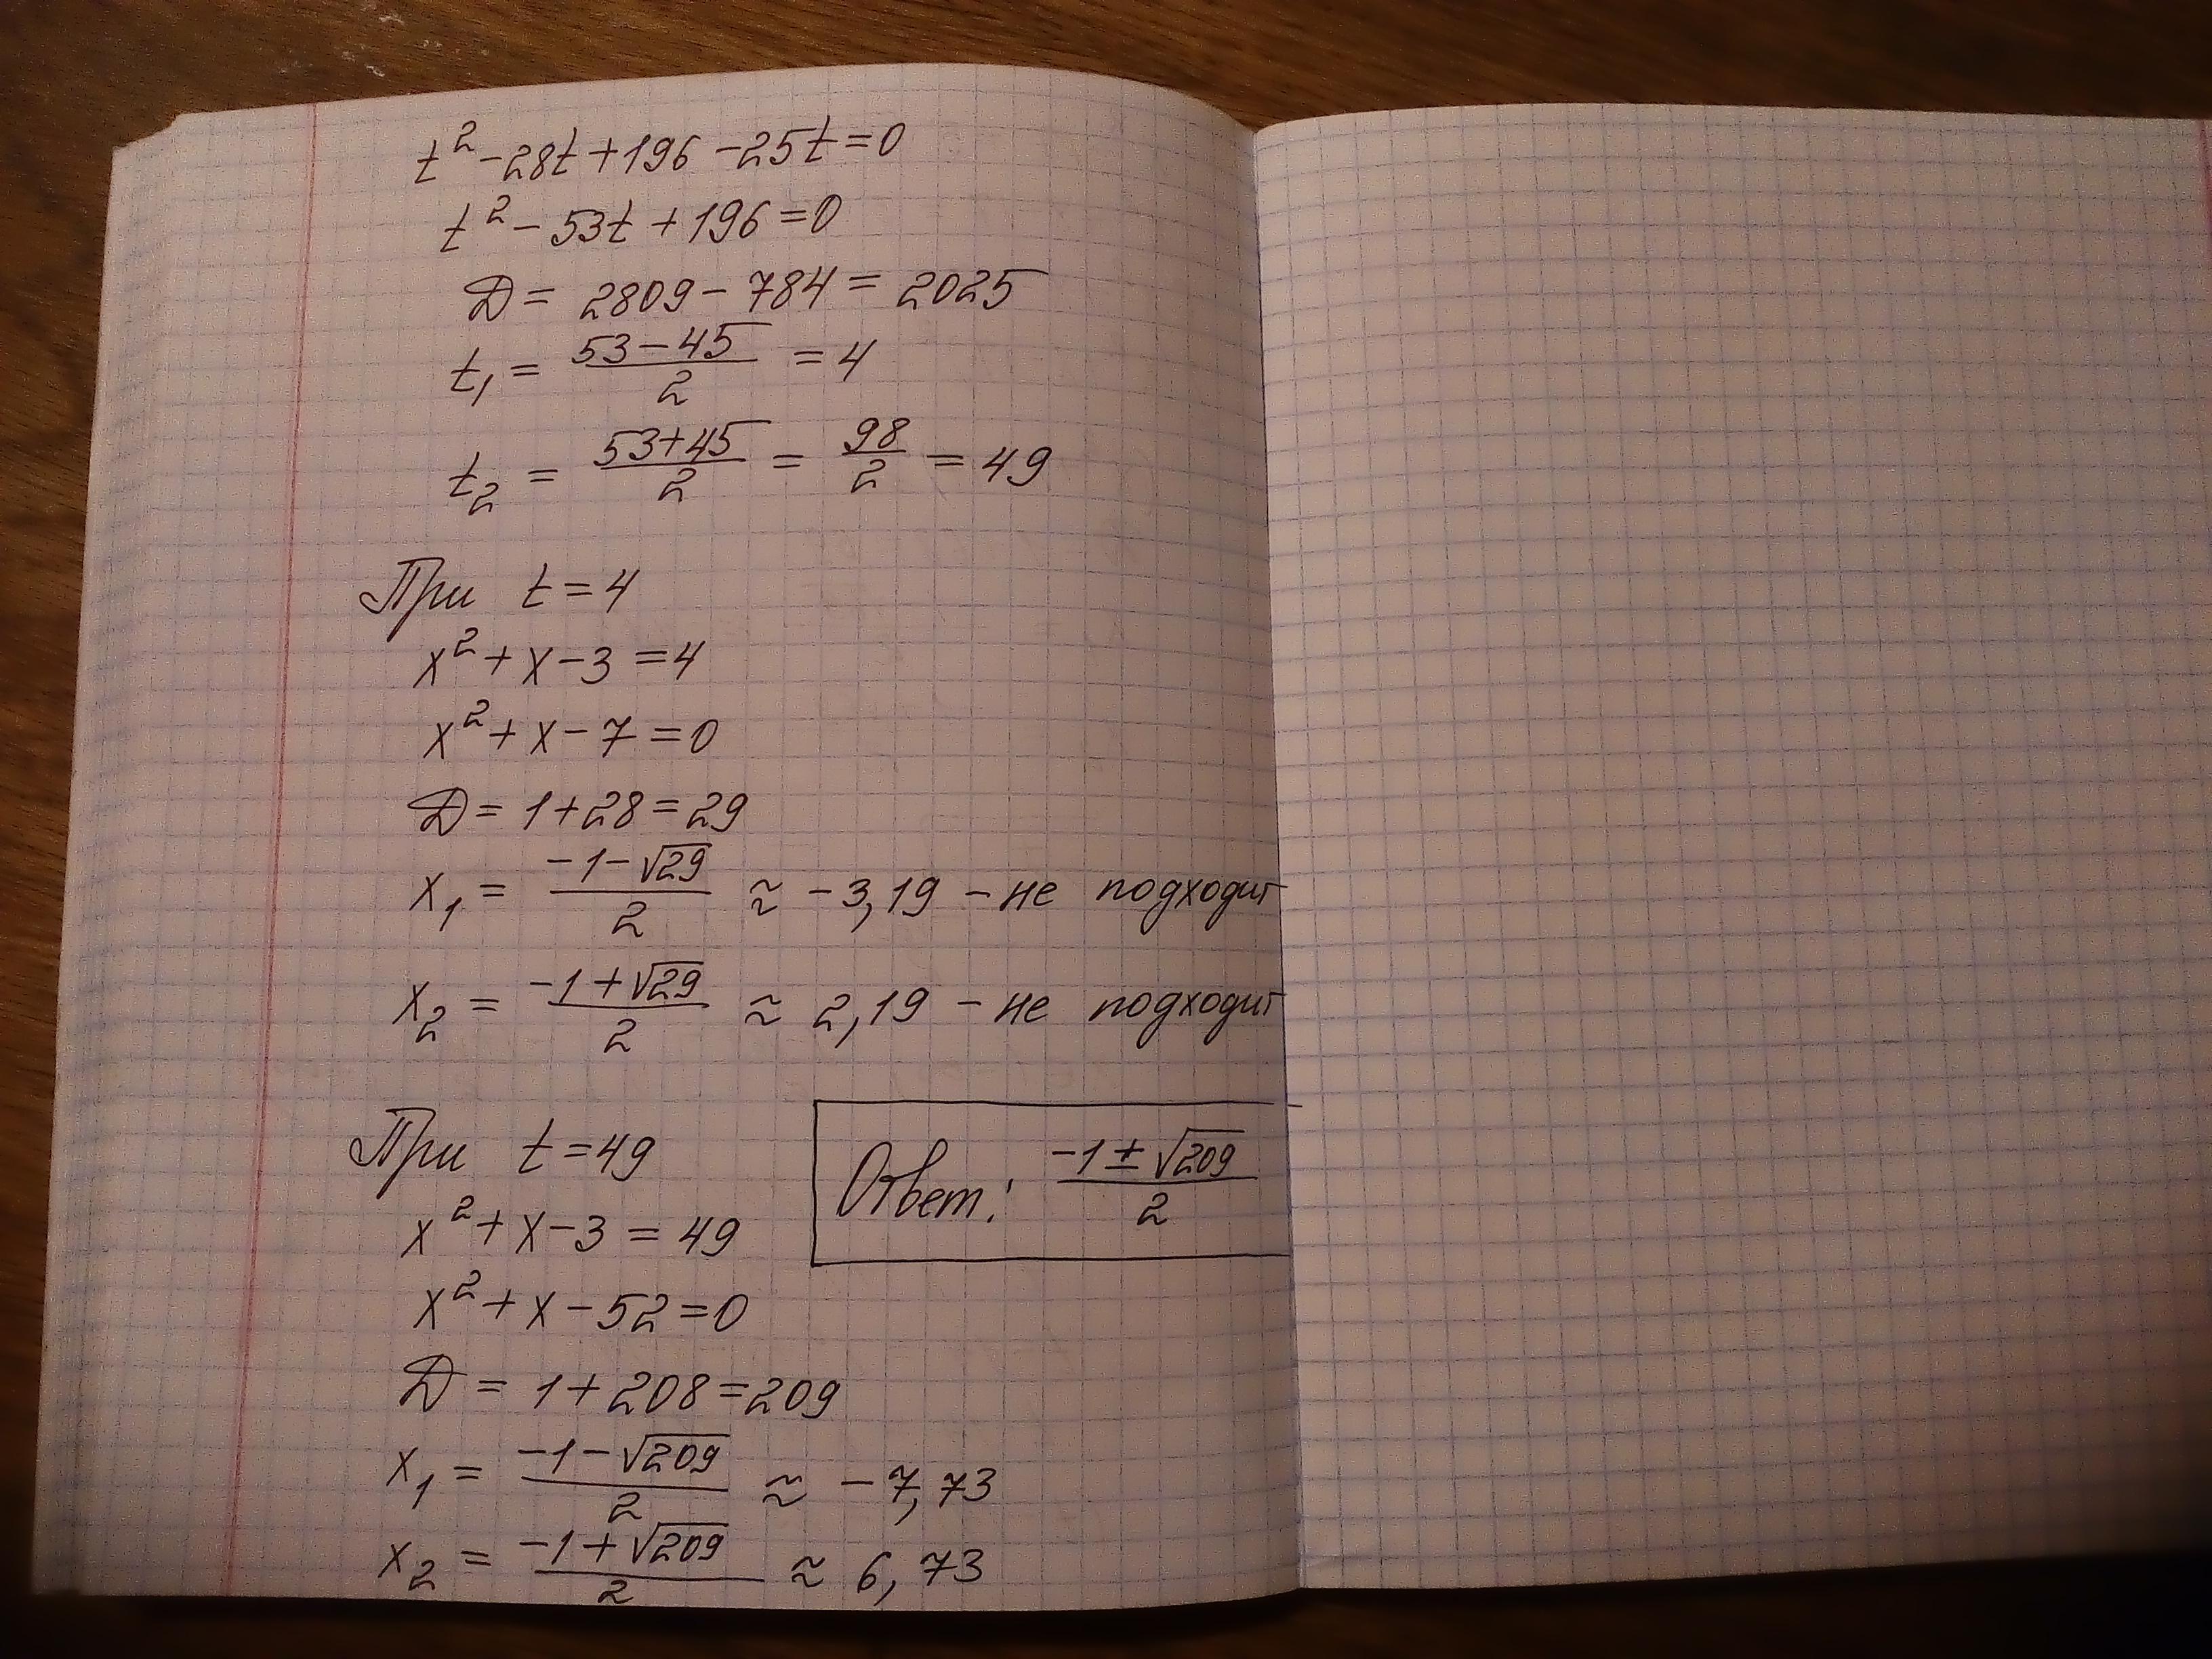 t² - 28t + 196 - 25t = 0
t² - 53t + 196 = 0
Д = 2809 - 784 = 2025
t₁ = (53 - 45)/2 = 4
t₂ = (53 + 45)/2 = 98/2 = 49
При t = 4
x² + x - 3 = 4
x² + x - 7 = 0
Д = 1 + 28 = 29
x₁ = (-1 - √29)/2 ≈ -3,19 - не подходит
x₂ = (-1 + √29)/2 ≈ 2,19 - не подходит
При t = 49
x² + x - 3 = 49
x² + x - 52 = 0
Д = 1 + 208 = 209
x₁ = (-1 - √209)/2 ≈ -7,73
x₂ = (-1 + √209)/2 ≈ 6,73
Ответ: (-1 ± √209)/2